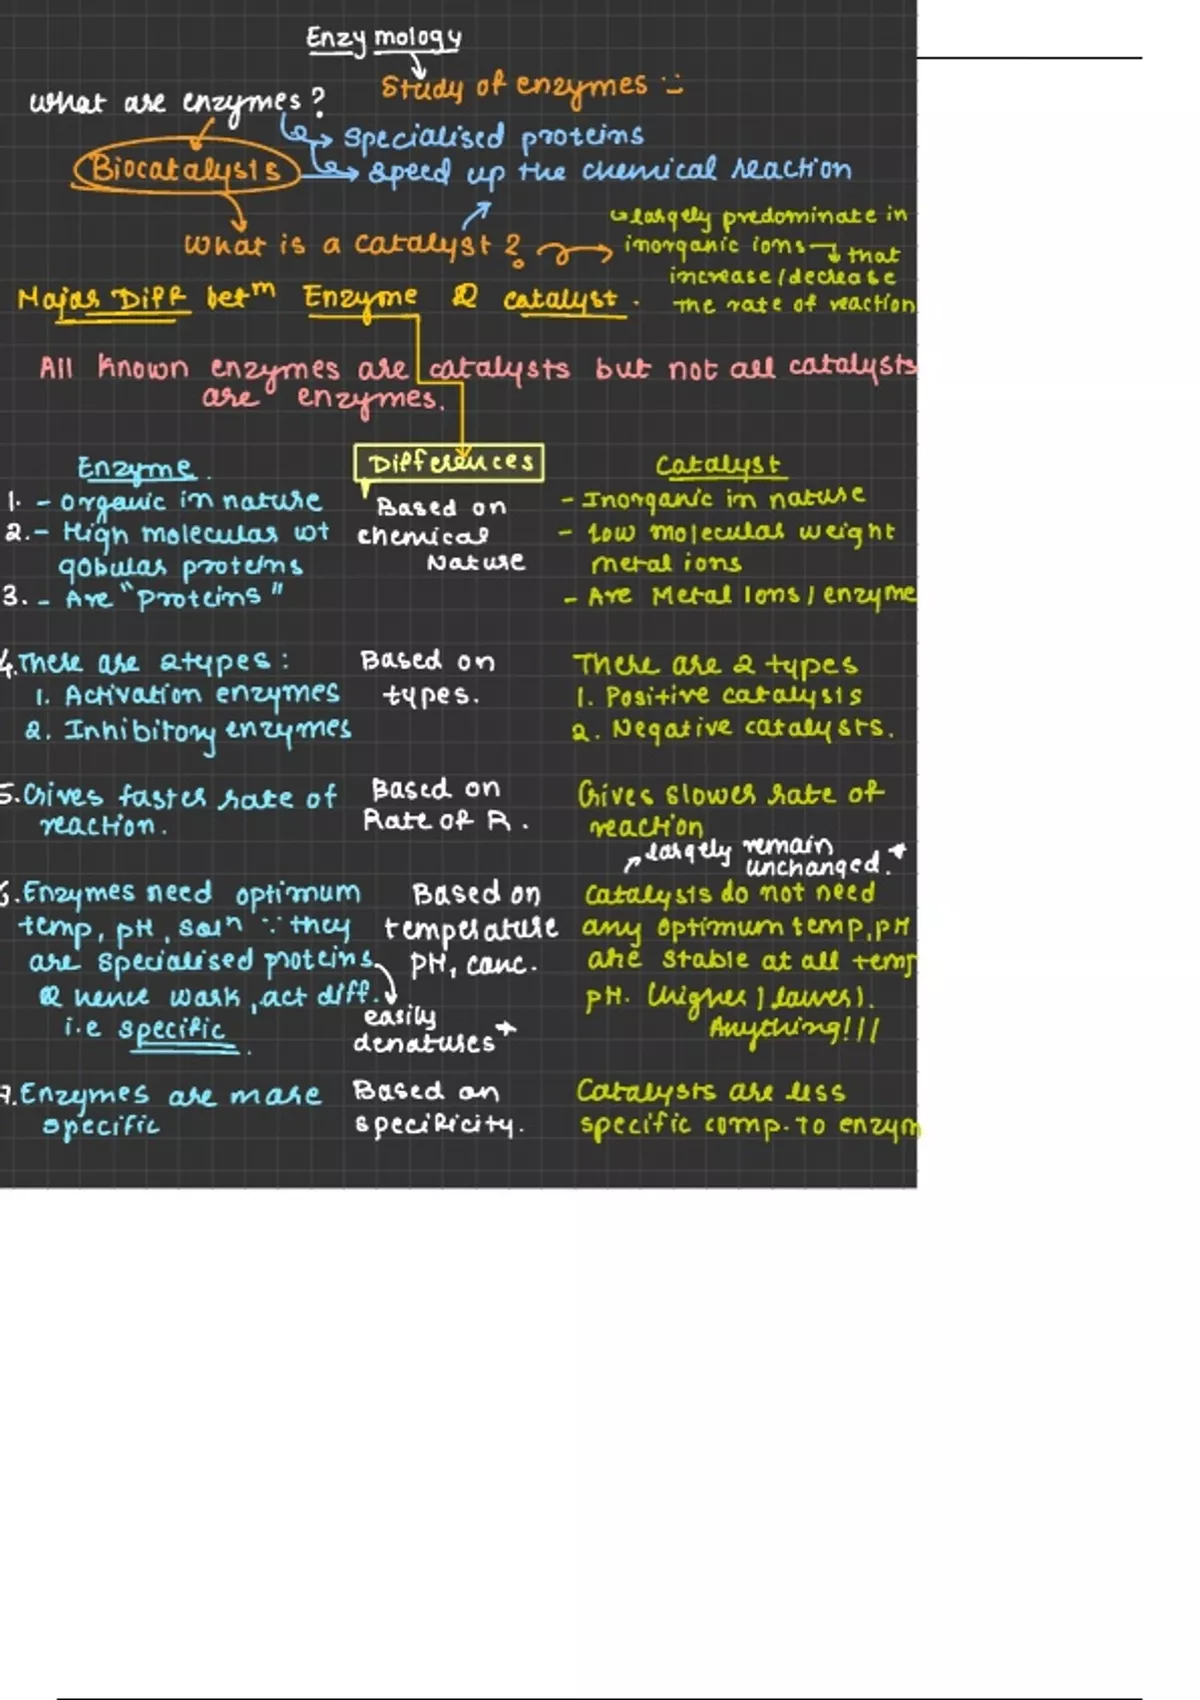 Enzymology
Study of enzymes
What are enzymes?
specialised proteins
Biocatalysts
speed up the chemical reaction
What is a catalyst?
largely predominate in
inorganic ions that
increase/decrease
the rate of reaction
Major Diff betn Enzyme & catalyst.
All known enzymes are catalysts but not all catalysts
are enzymes.
Differences
Enzyme.
Catalyst
1. - organic in nature
Based on
- Inorganic in nature
2. - High molecular wt
chemical
- low molecular weight
gobular proteins
Nature
metal ions
3. - Are "Proteins"
- Are Metal Ions / enzyme
4. There are 2 types:
Based on
There are 2 types
1. Activation enzymes
types.
1. Positive catalysis
2. Inhibitory enzymes
2. Negative catalysts.
5. Gives faster rate of
Based on
Gives slower rate of
reaction.
Rate of R.
reaction
largely remain
unchanged.
6. Enzymes need optimum
Based on
Catalysts do not need
temp, pH, soln ∵ they
temperature
any optimum temp, pH
are specialised proteins
PH, conc.
are stable at all temp
& hence work, act diff.
pH. (higher / lower).
i.e specific.
easily
denatures
Anything!!!
7. Enzymes are more
Based on
Catalysts are less
specific
specificity.
specific comp. to enzym